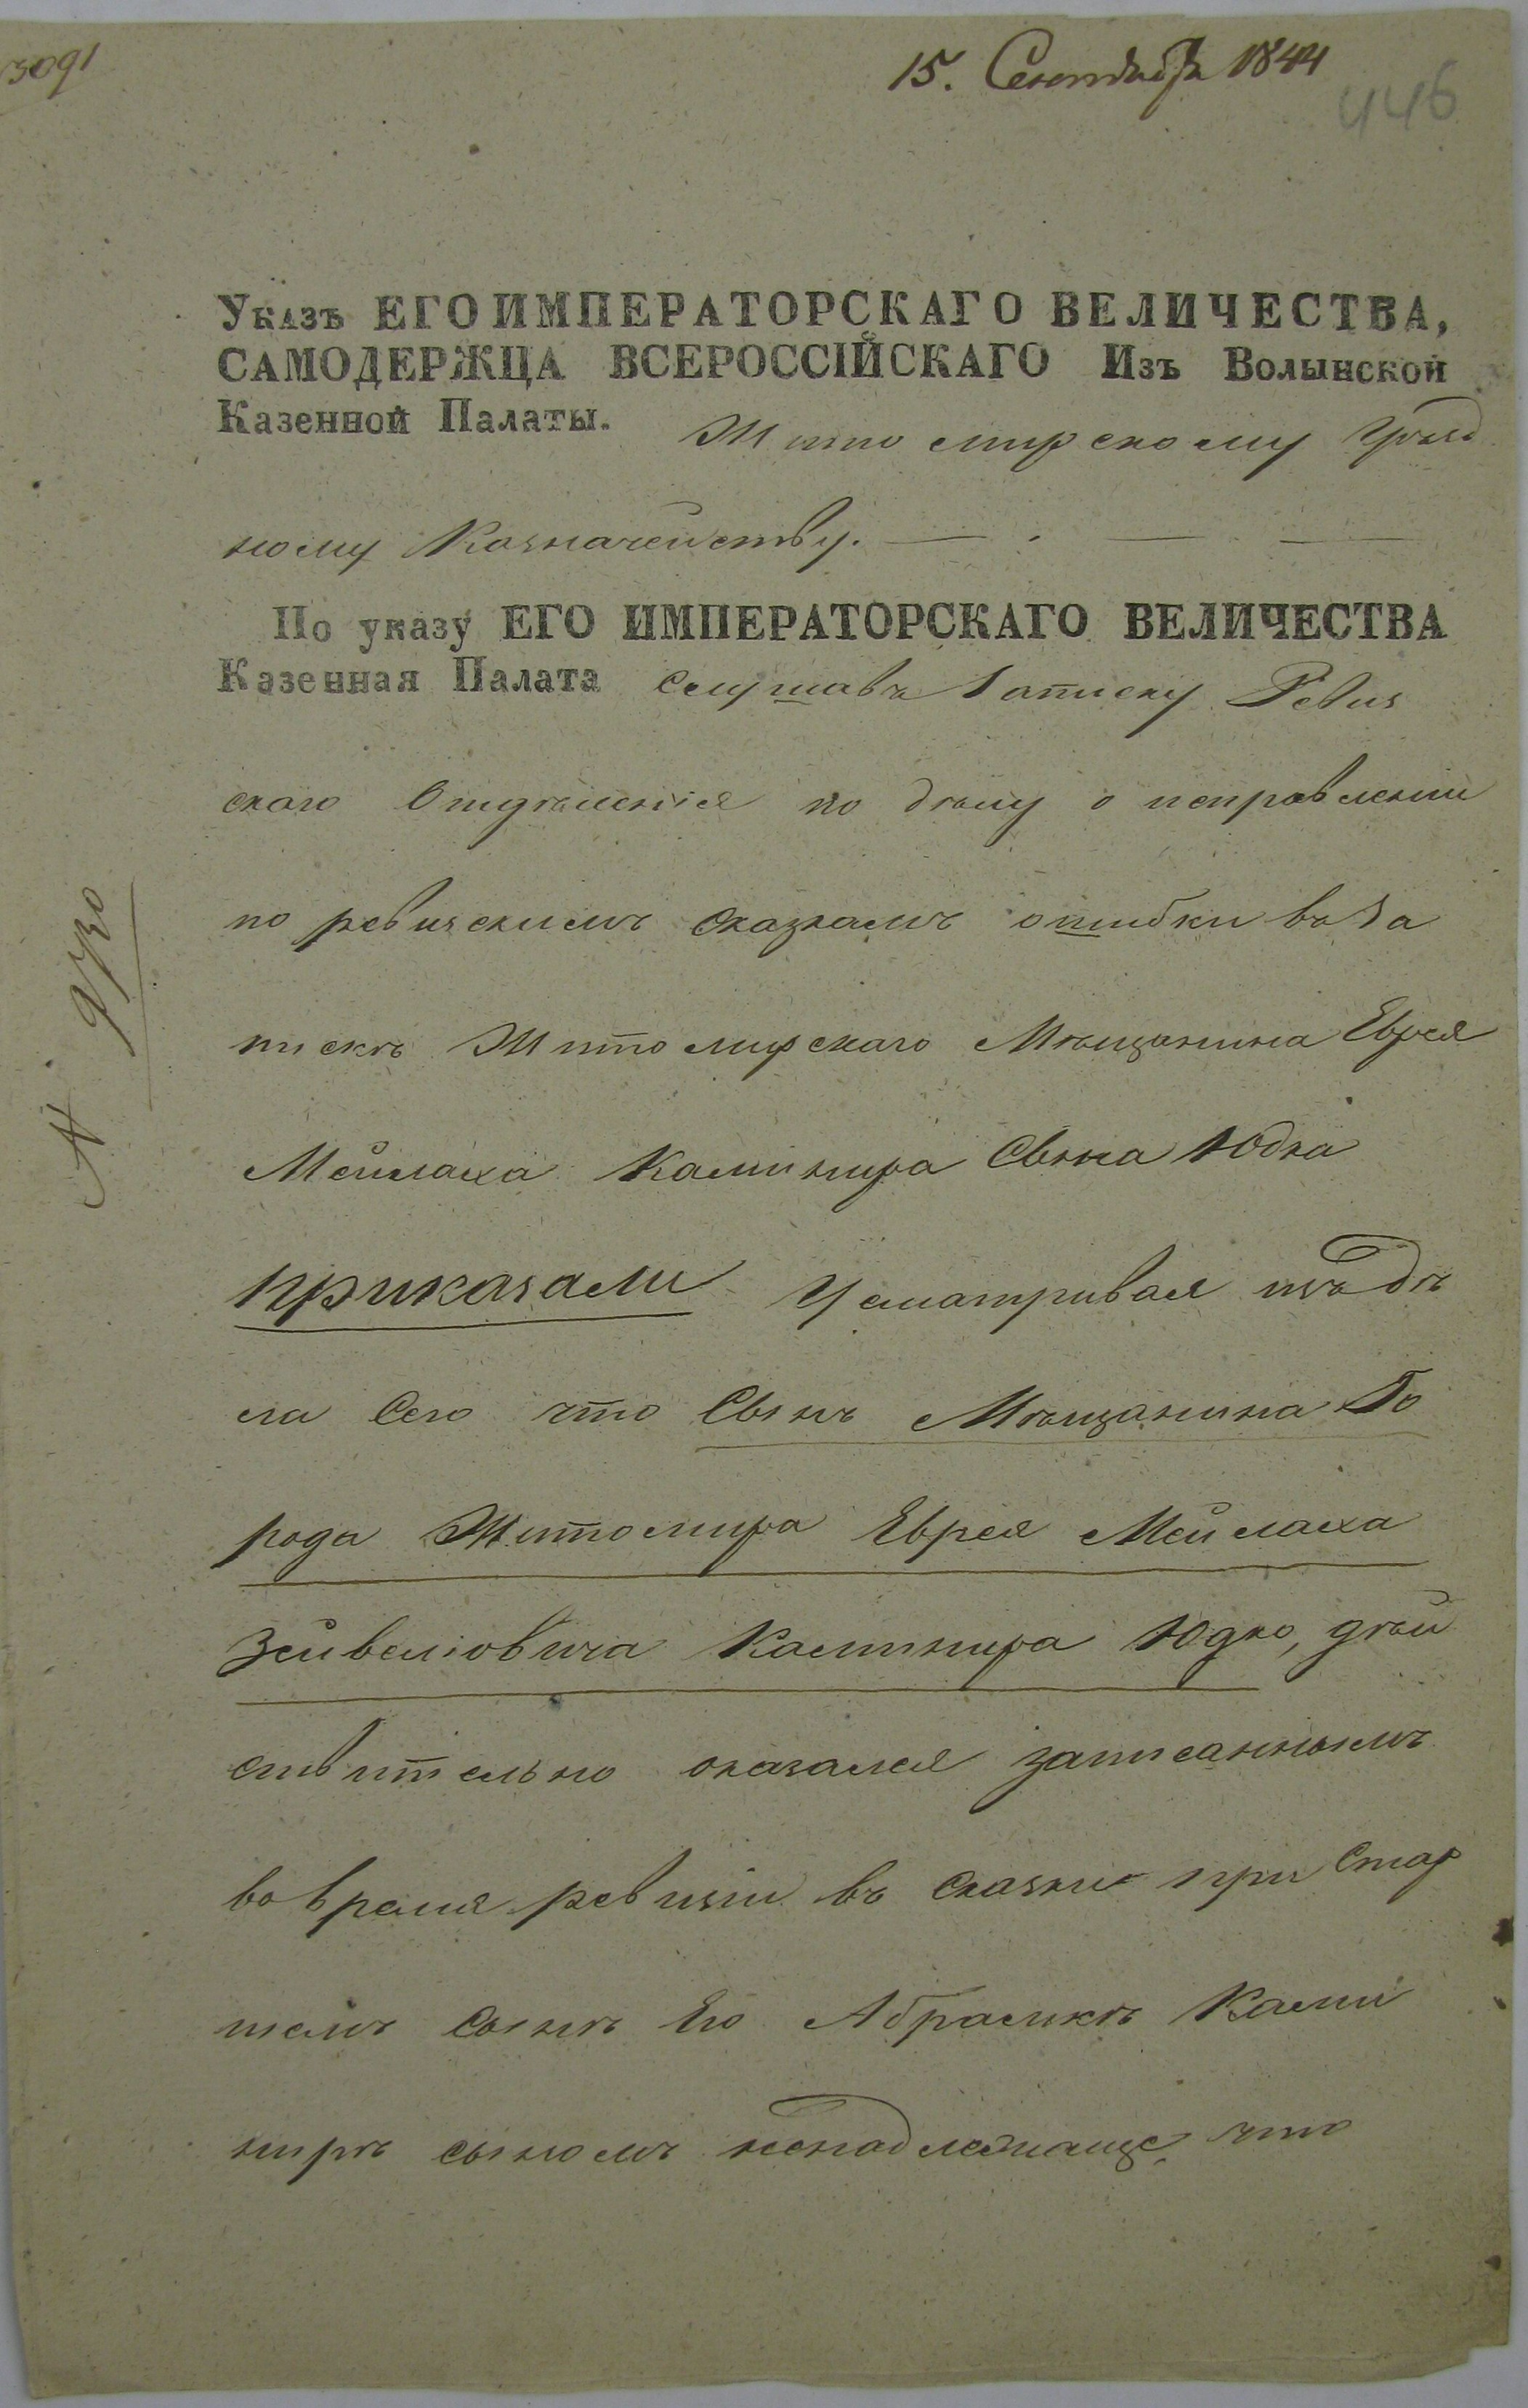 3091
15. Сентября 1844
446
Указъ ЕГО ИМПЕРАТОРСКАГО ВЕЛИЧЕСТВА,
САМОДЕРЖЦА ВСЕРОССІЙСКАГО Изъ Волынской
Казенной Палаты. Житомирскому Уѣзд
ному Казначейству.
По указу ЕГО ИМПЕРАТОРСКАГО ВЕЛИЧЕСТВА
Казенная Палата слушавъ Записку Ревиз
скаго Отдѣленія по дѣлу о исправленіи
по ревизскимъ сказкамъ ошибки въ За
пискѣ Житомирскаго Мѣщанина Еврея
Мейлаха Каминира Сына Юдка
приказали Усматривая изъ дѣ
ла Сего что Сынъ Мѣщанина Го
рода Житомира Еврея Мейлаха
Зейвеліовича Каминира Юдко, дѣй
ствительно оказался записаннымъ
во время ревизіи въ Сказки при Стар
шемъ Сынѣ Его Абрамкѣ Ками
нирѣ сыномъ ненадлежаще, что
N